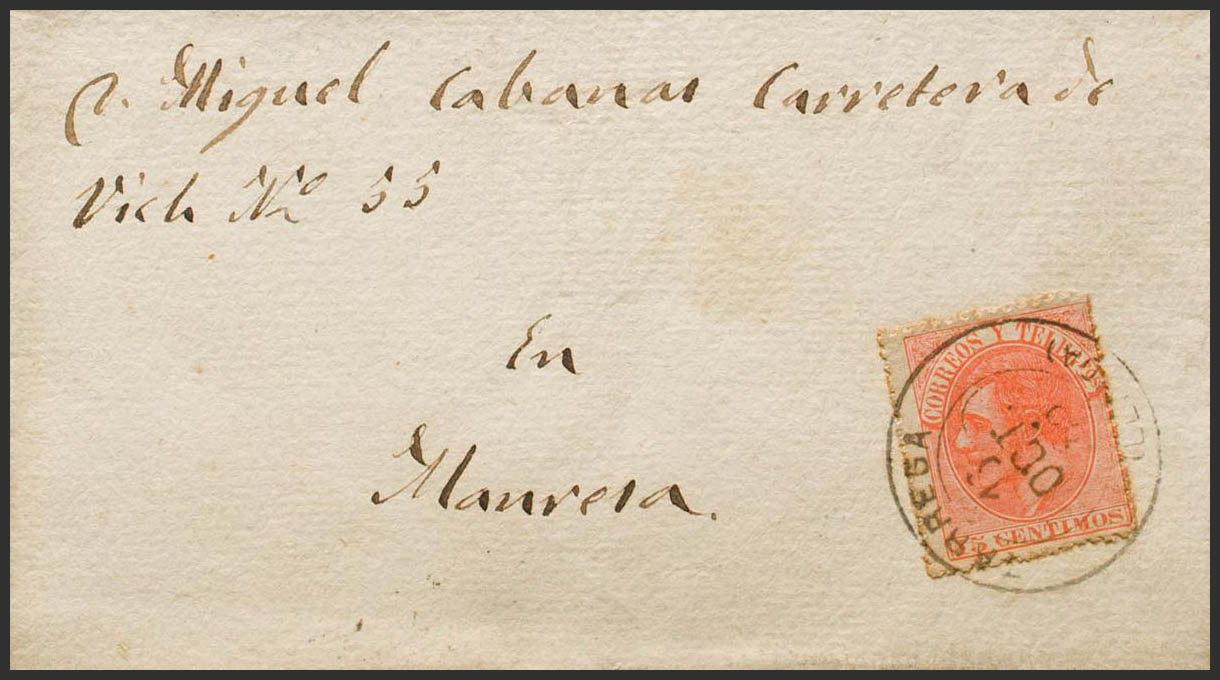 D. Miguel Cabanas Carretera de
Vich Nº 55
En
Manresa.
CORREOS Y TELE
15 CENTIMOS
TARREGA
OCT